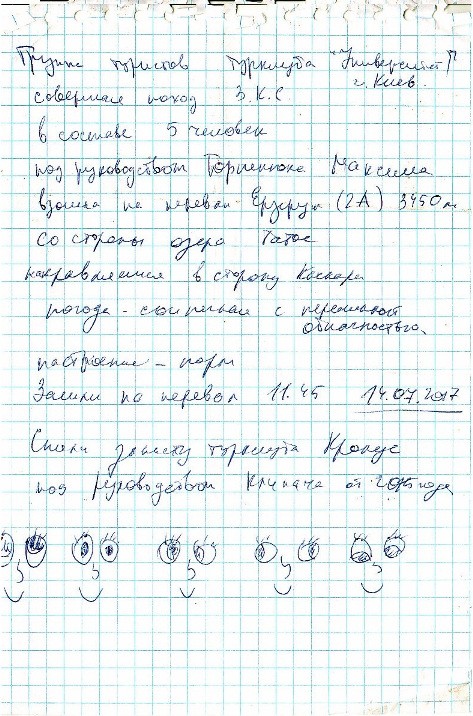 Группа туристов турклуба "Университет"
г. Киев.
совершая поход 3 к.с
в составе 5 человек
под руководством Максима
взошла на перевал (2А) 3450 м
со стороны озера Татос
направляемся в сторону
погода - солнечная с переменной
облачностью.
настроение - норм
Залезли на перевал 11.45 14.07.2017
Сняли записку турклуба Крокус
под руководством от 2015 года